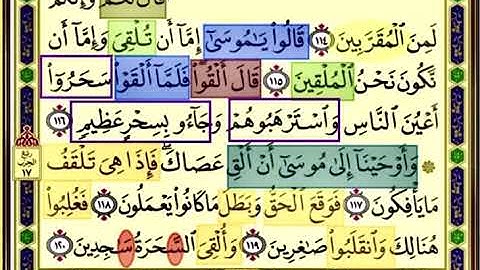 قَالَ نَعَمْ وَإِنَّكُمْ
لَمِنَ ٱلْمُقَرَّبِينَ ١١٤ قَالُوا۟ يَـٰمُوسَىٰٓ إِمَّآ أَن تُلْقِىَ وَإِمَّآ أَن
نَّكُونَ نَحْنُ ٱلْمُلْقِينَ ١١٥ قَالَ أَلْقُوا۟ فَلَمَّآ أَلْقَوْا۟ سَحَرُوٓا۟
أَعْيُنَ ٱلنَّاسِ وَٱسْتَرْهَبُوهُمْ وَجَآءُو بِسِحْرٍ عَظِيمٍ ١١٦
۞ وَأَوْحَيْنَآ إِلَىٰ مُوسَىٰٓ أَنْ أَلْقِ عَصَاكَ ۖ فَإِذَا هِىَ تَلْقَفُ
مَا يَأْفِكُونَ ١١٧ فَوَقَعَ ٱلْحَقُّ وَبَطَلَ مَا كَانُوا۟ يَعْمَلُونَ ١١٨ فَغُلِبُوا۟
هُنَالِكَ وَٱنقَلَبُوا۟ صَـٰغِرِينَ ١١٩ وَأُلْقِىَ ٱلسَّحَرَةُ سَـٰجِدِينَ ١٢٠
ربع
الحزب
١٧